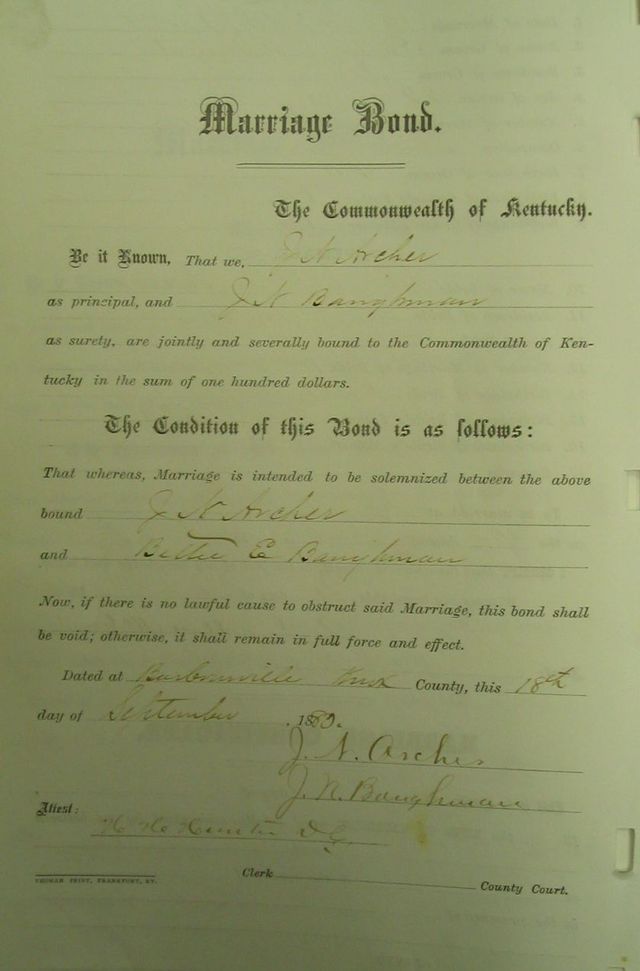 Marriage Bond.
The Commonwealth of Kentucky.
Be it Known, That we, J N Archer
as principal, and J N Baughman
as surety, are jointly and severally bound to the Commonwealth of Ken-
tucky in the sum of one hundred dollars.
The Condition of this Bond is as follows:
That whereas, Marriage is intended to be solemnized between the above
bound J N Archer
and Bettie E Baughman
Now, if there is no lawful cause to obstruct said Marriage, this bond shall
be void; otherwise, it shall remain in full force and effect.
Dated at Barbourville Knox County, this 18th
day of September, 18
J. N. Archer
J. N. Baughman
Attest:
D C
Clerk County Court.
PRINT, FRANKFORT, KY.